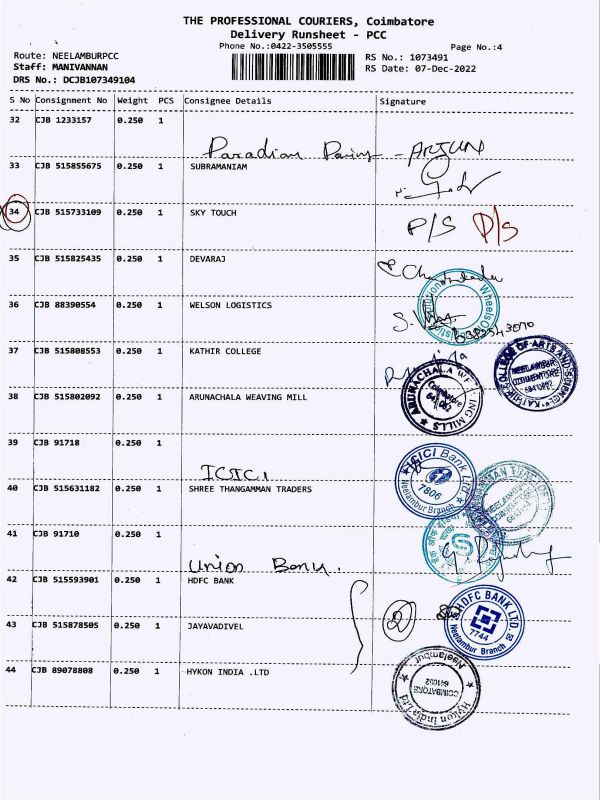 THE PROFESSIONAL COURIERS, Coimbatore
Delivery Runsheet - PCC
Phone No.:0422-3505555 Page No.:4
Route: NEELAMBURPCC RS No.: 1073491
Staff: MANIVANNAN RS Date: 07-Dec-2022
DRS No.: DCJB107349104
S No Consignment No Weight PCS Consignee Details Signature
32 CJB 1233157 0.250 1
- ARJUN
33 CJB 515855675 0.250 1 SUBRAMANIAM
34 CJB 515733109 0.250 1 SKY TOUCH P/S P/S
35 CJB 515825435 0.250 1 DEVARAJ
36 CJB 88390554 0.250 1 WELSON LOGISTICS
37 CJB 515808553 0.250 1 KATHIR COLLEGE
KATHIR COLLEGE OF ARTS AND
NEELAMBUR
COIMBATORE
641062
38 CJB 515802092 0.250 1 ARUNACHALA WEAVING MILL
ARUNACHALA WEAVING MILLS
Coimbatore
641 062
39 CJB 91718 0.250 1
ICICI
ICICI Bank Ltd
7806
Neelambur Branch
40 CJB 515631182 0.250 1 SHREE THANGAMMAN TRADERS
41 CJB 91710 0.250 1
Union Bank.
42 CJB 515593901 0.250 1 HDFC BANK
HDFC BANK LTD.
7744
Neelambur Branch
43 CJB 515878505 0.250 1 JAYAVADIVEL
44 CJB 89078808 0.250 1 HYKON INDIA .LTD
Neelambur
COIMBATORE
641062
Hykon India Ltd